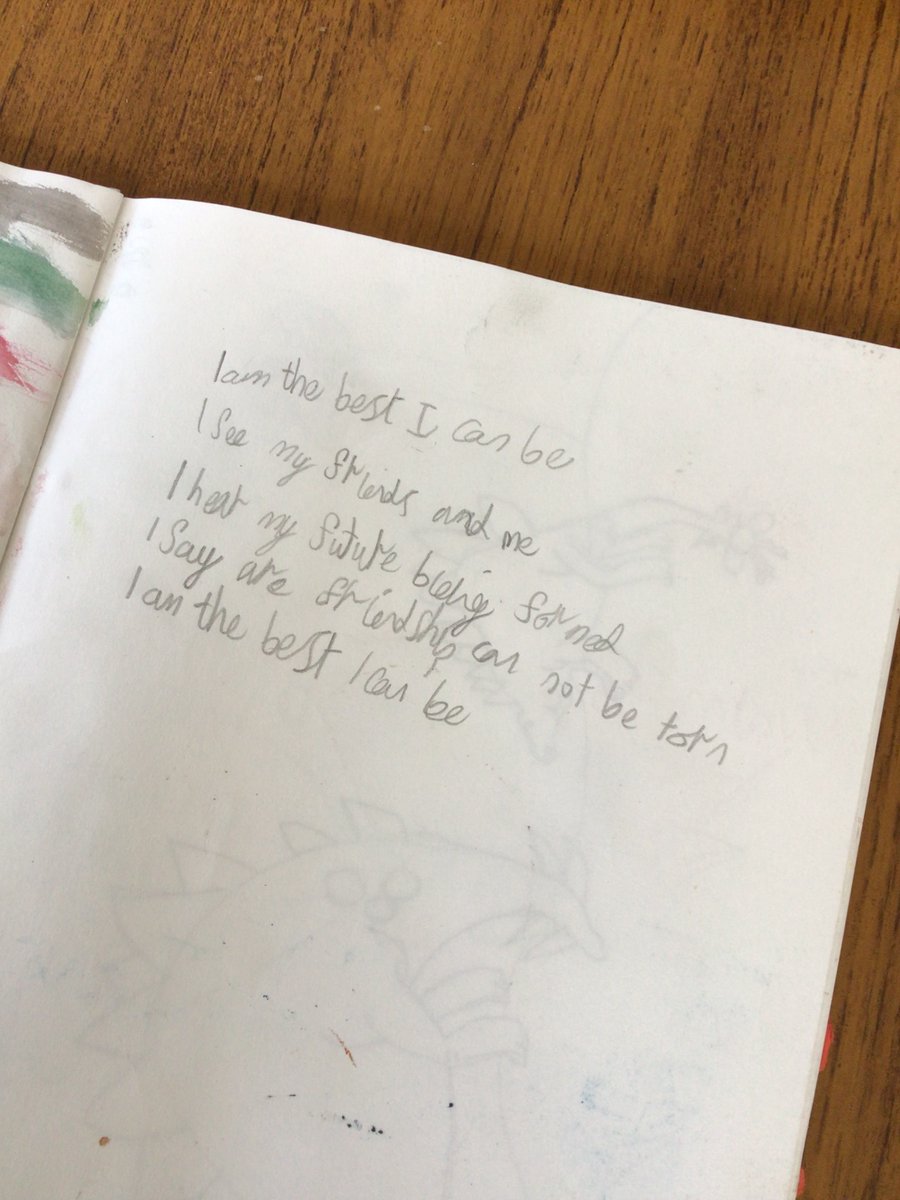 I am the best I can be
I see my friends and me
I hear my future being formed
I say are friendship can not be torn
I am the best I can be